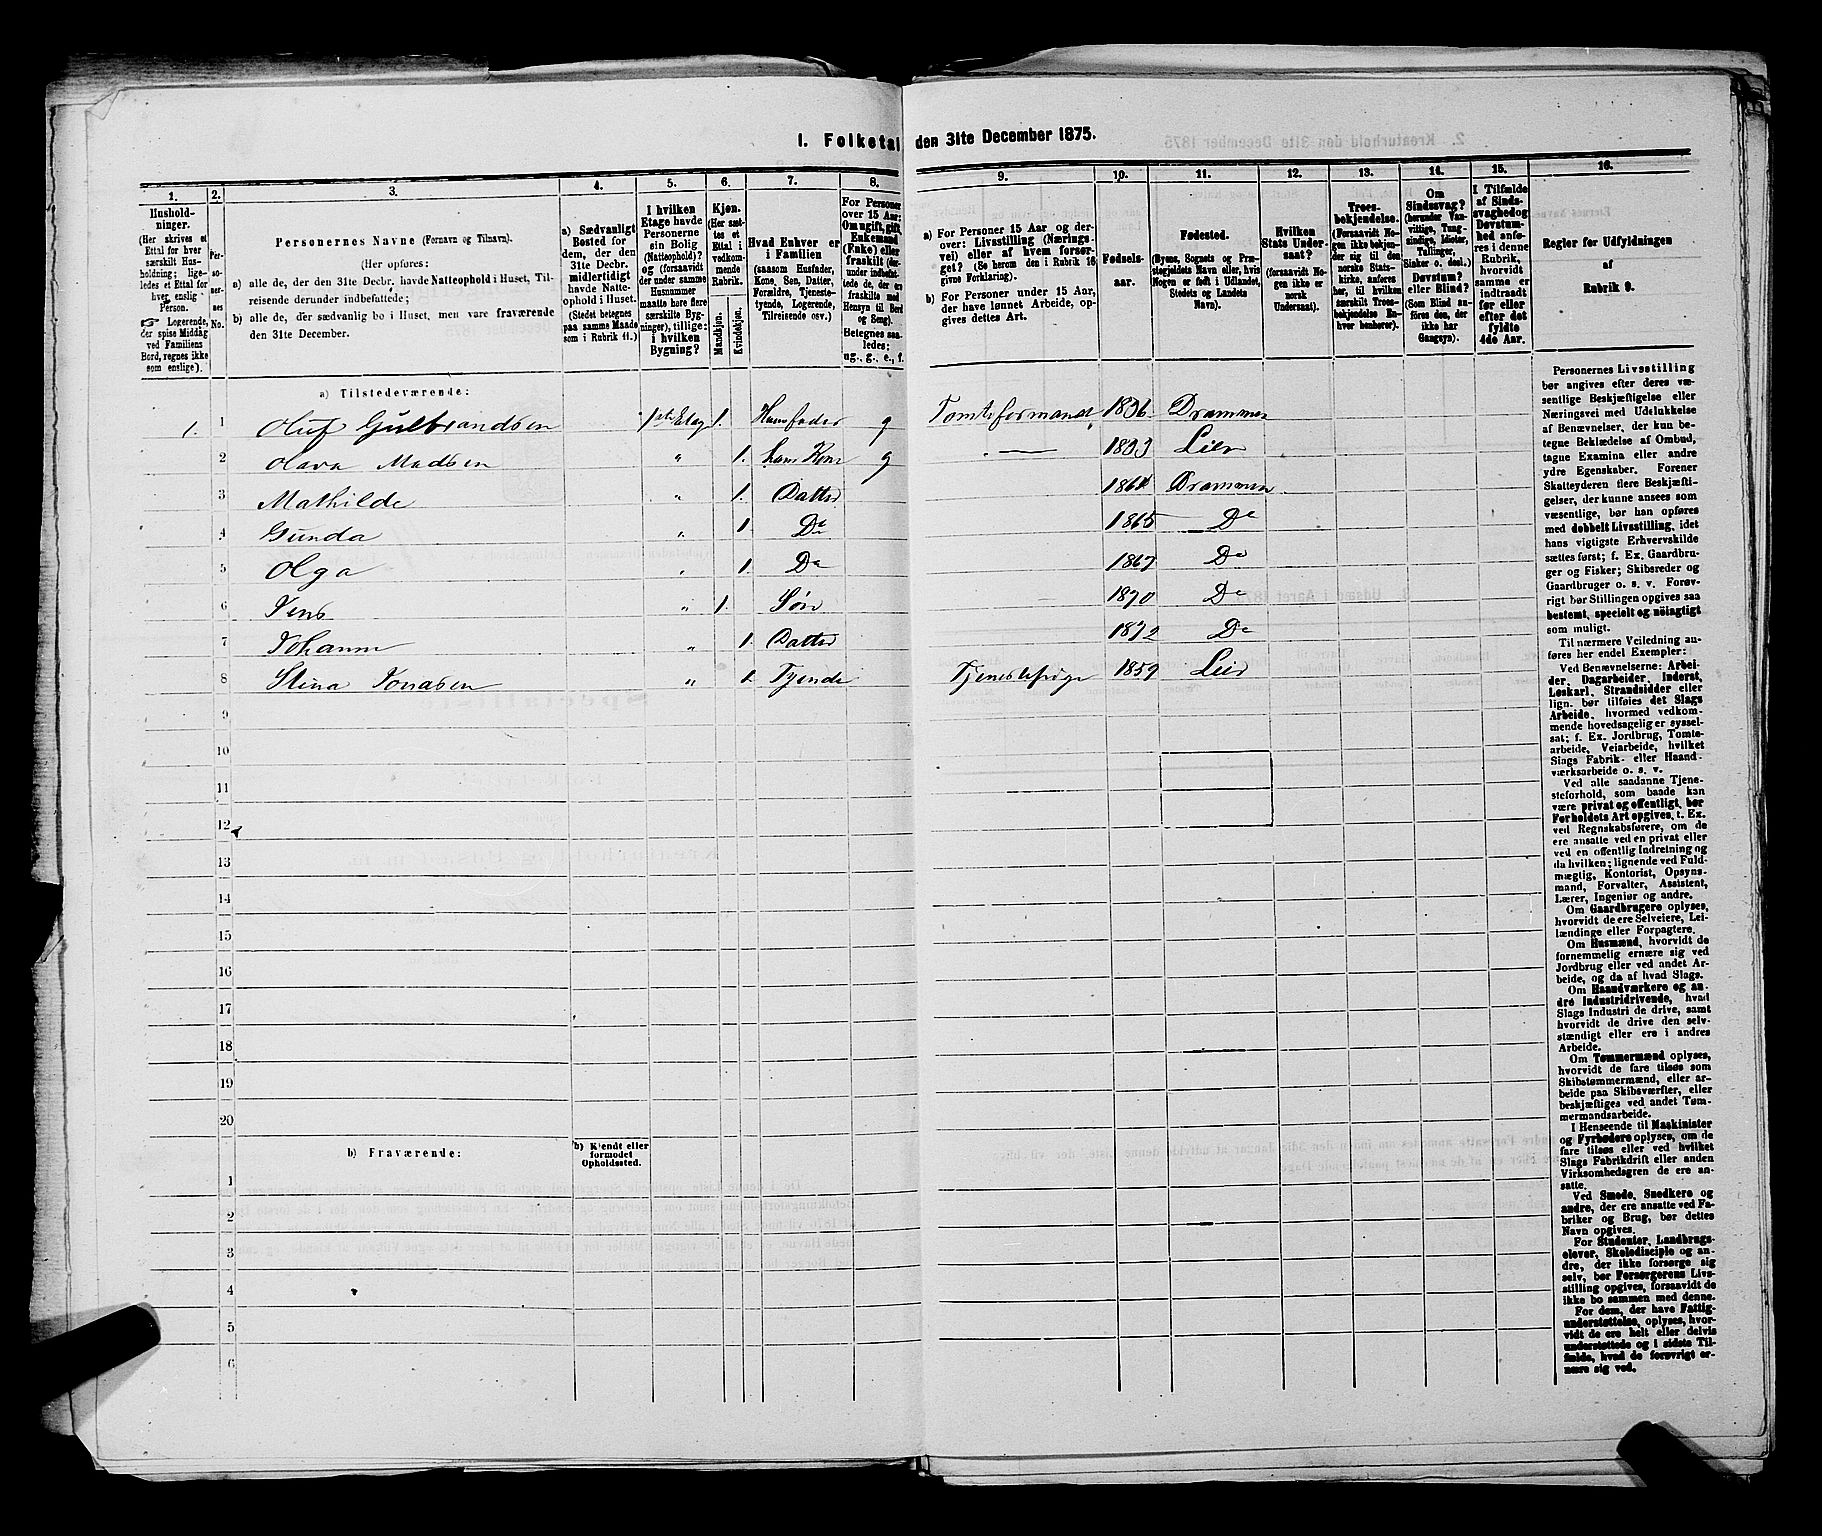 1. Folketal den 31te December 1875.
1. 2. 3. 4. 5. 6. 7. 8. 9. 10. 11. 12. 13. 14. 15. 16.
Hushold-
ninger.
(Her skrives et
Ettal for hver
særskilt Hus-
holdning; lige-
ledes et Ettal for
hver enslig
Person.
☞ Logerende,
der spise Middag
ved Familiens
Bord, regnes ikke
som enslige).
Per-
so-
ner-
nes
No.
Personernes Navne (Fornavn og Tilnavn).
(Her opføres:
a) alle de, der den 31te Decbr. havde Natteophold i Huset, Til-
reisende derunder indbefattede;
b) alle de, der sædvanlig bo i Huset, men vare fraværende
den 31te December.
a) Sædvanligt
Bosted for
dem, der den
31te Decbr.
midlertidigt
havde Natte-
ophold i Huset.
(Stedet betegnes
paa samme Maade
som i Rubrik 11.)
I hvilken
Etage havde
Personerne
sin Bolig
(Natteophold)?
og (forsaavidt
der under samme
Husnummer
maatte høre flere
særskilte Byg-
ninger), tillige:
i hvilken
Bygning?
Kjøn.
(Her sæt-
tes et
Ettal i
vedkom-
mende
Rubrik.
Mandkjøn.
Kvindekjøn.
Hvad Enhver er
i Familien
(saasom Husfader,
Kone, Søn, Datter,
Forældre, Tjeneste-
tyende, Logerende,
Tilreisende osv.)
For Personer
over 15 Aar:
Om ugift, gift,
Enkemand
(Enke) eller
fraskilt (der-
under indbefat-
tede de, der ere
fraskilte med
Hensyn til Bord
og Seng).
Betegnes saa-
ledes:
ug., g., e., f.
a) For Personer 15 Aar og der-
over: Livsstilling (Nærings-
vei) eller af hvem forsør-
get? (Se herom den i Rubrik 16
givne Forklaring).
b) For Personer under 15 Aar,
der have lønnet Arbeide, op-
gives dettes Art.
Fødsels-
aar.
Fødested.
(Byens, Sognets og Præ-
stegjeldets Navn eller, hvis
Nogen er født i Udlandet,
Stedets og Landets
Navn).
Hvilken
Stats Under-
saat?
(forsaavidt No-
gen ikke er
norsk
Undersaat).
Troes-
bekjendelse.
(Forsaavidt No-
gen ikke bekjen-
der sig til den
norske Stats-
kirke, anføres
her, til hvilken
særskilt Troes-
bekjendelse En-
hver henhører).
Om
Sindssvag?
(herunder Van-
vittige, Tung-
sindige, Idioter,
Tullinger,
Sinker o. desl.)
Døvstum?
eller Blind?
(Som Blind an-
føres den, der
ikke har
Gangsyn).
I Tilfælde
af Sinds-
svaghed og
Døvstum-
hed anfø-
res i denne
Rubrik,
hvorvidt
samme er
indtraadt
før eller
efter det
fyldte
4de Aar.
Regler for Udfyldningen
af
Rubrik 9.
a) Tilstedeværende:
1. 1 Oluf Gulbrandsen 1ste Etag 1. Husfader g Tomteformand 1836 Drammen
2 Hava Madsen " 1. hans Kone g 1833 Lier
3 Mathilde " 1. Datter 1861 Drammen
4 Gunda " 1. Do 1865 Do
5 Olga " 1. Do 1867 Do
6 Jens " 1. Søn 1870 Do
7 Johanne " 1. Datter 1872 Do
8 Stina Jonasen " 1. Tyende Tjenestepige 1859 Lier
9
10
11
12
13
14
15
16
17
18
19
20
b) Fraværende:
b) Kjendt eller
formodet
Opholdssted.
1
2
3
4
5
6
Personernes Livsstilling
bør angives efter deres væ-
sentlige Beskjæftigelse eller
Næringsvei med Udelukkelse
af Benævnelser, der kun be-
tegne Beklædelse af Ombud,
tagne Examina eller andre
ydre Egenskaber. Forener
Skatteyderen flere Beskjæfti-
gelser, der kunne ansees som
væsentlige, bør han opføres
med dobbelt Livsstilling, idet
hans vigtigste Erhvervskilde
sættes først; f. Ex. Gaardbru-
ger og Fisker; Skibsreder og
Gaardbruger o. s. v. Forøv-
rigt bør Stillingen opgives saa
bestemt, specielt og nöiagtigt
som muligt.
Til nærmere Veiledning an-
føres her endel Exempler:
Ved Benævnelserne: Arbei-
der, Dagarbeider, Inderst,
Løskarl, Strandsidder eller
lign. bør tilføies det Slags
Arbeide, hvormed vedkom-
mende hovedsagelig er syssel-
sat; f. Ex. Jordbrug, Tomte-
arbeide, Veiarbeide, hvilket
Slags Fabrik- eller Haand-
værksarbeide o. s. v.
Ved alle saadanne Tjene-
steforhold, som baade kan
være privat og offentligt, bør
Forholdets Art opgives, t. Ex.
ved Regnskabsførere, om de
ere ansatte ved en privat eller
ved en offentlig Indretning og
da hvilken; lignende ved Fuld-
mægtig, Kontorist, Opsyns-
mand, Forvalter, Assistent,
Lærer, Ingeniør og andre.
Om Gaardbrugere oplyses,
hvorvidt de ere Selveiere, Lei-
lændinge eller Forpagtere.
Om Husmænd, hvorvidt de
fornemmelig ernære sig ved
Jordbrug eller ved andet Ar-
beide, og da af hvad Slags.
Om Haandværkere og an-
dre Industridrivende, hvad
Slags Industri de drive, samt
hvorvidt de drive den selv-
stændigt eller ere i andres
Arbeide.
Om Tømmermænd oplyses,
hvorvidt de fare tilsøs som
Skibstømmermænd, eller ar-
beide paa Skibsværfter, eller
beskjæftiges ved andet Tøm-
mermandsarbeide.
I Henseende til Maskinister
og Fyrbødere oplyses, om de
fare tilsøs eller ved hvilket
Slags Fabrikdrift eller anden
Virksomhedsgren de ere an-
satte.
Ved Smede, Snedkere og
andre, der ere ansatte ved Fa-
briker og Brug, bør dettes
Navn opgives.
For Studenter, Landbrugs-
elever, Skoledisciple og an-
dre, der ikke forsørge sig
selv, bør Forsørgerens Livs-
stilling opgives, forsaavidt de
ikke bo sammen med denne.
For dem, der have Fattig-
understøttelse, oplyses, hvor-
vidt de ere helt eller delvis
understøttede og i sidste Til-
fælde, hvad de forøvrigt er-
nære sig ved.